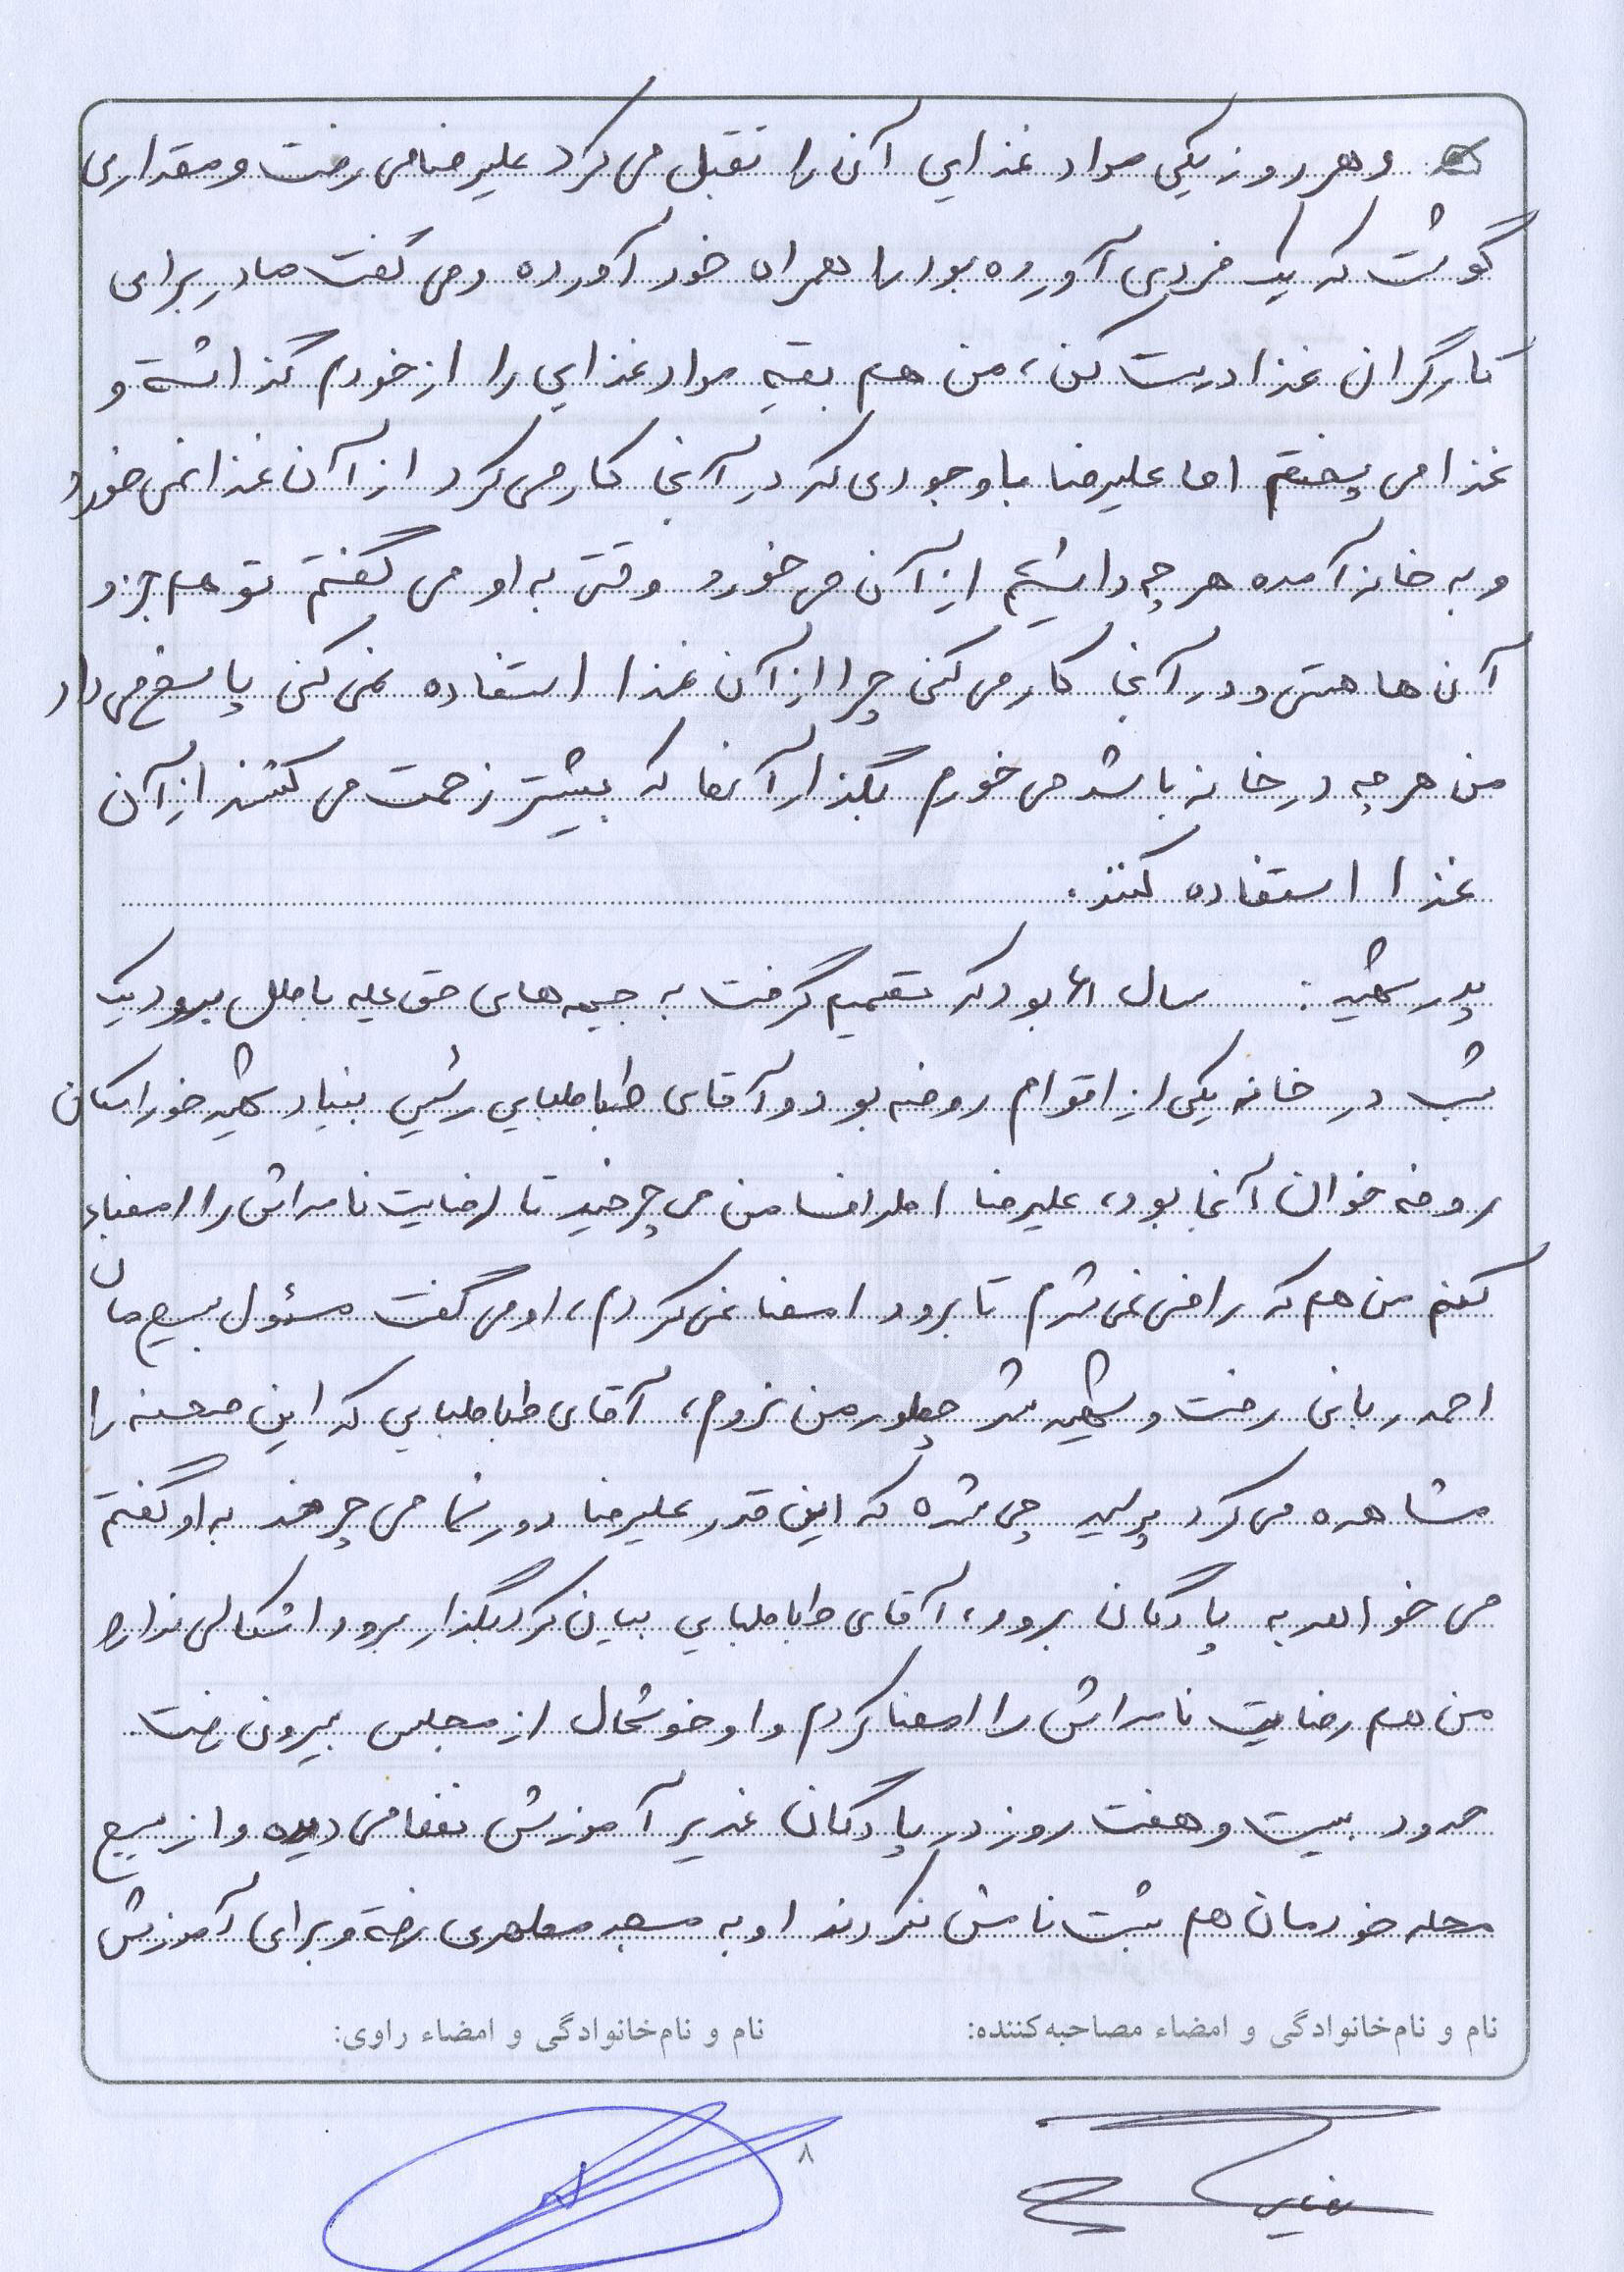 و هر روز یکی مواد غذایی آن را تقبل می کرد علیرضا می رفت و مقداری
گوشت که یک فردی آورده بود را همراه خود آورده و می گفت مادر برای
کارگران غذا درست کن، من هم بقیه مواد غذایی را از خودم گذاشته و
غذا می پختم اما علیرضا با وجودی که در آنجا کار می کرد از آن غذا نمی خورد
و به خانه آمده هر چه داشتیم از آن می خورد و وقتی به او می گفتم تو هم جزو
آن ها هستی و در آنجا کار می کنی چرا از آن غذا استفاده نمی کنی پاسخ می داد
من هر چه در خانه باشد می خورم بگذار آنها که بیشتر زحمت می کشند از آن
غذا استفاده کنند.
پدر شهید: سال ۶۱ بود که تصمیم گرفت به جبهه های حق علیه باطل برود یک
شب در خانه یکی از اقوام روضه بود و آقای طباطبایی رئیس بنیاد شهید خوراسگان
روضه خوان آنجا بود، علیرضا اطراف من می چرخید تا رضایت نامه اش را امضاء
کنم من هم که راضی نمی شدم تا برود امضا نمی کردم، او می گفت مسئول بسیج مان
احمد ربانی رفت و شهید شد چطور من نروم، آقای طباطبایی که این صحنه را
مشاهده می کرد پرسید چی شده که این قدر علیرضا دور شما می چرخد به او گفتم
می خواهد به پادگان برود، آقای طباطبایی بیان کرد بگذار برود اشکالی ندارد
من هم رضایت نامه اش را امضا کردم و او خوشحال از مجلس بیرون رفت.
حدود بیست و هفت روز در پادگان غدیر آموزش نظامی دیده و از بسیج
محله خودمان هم ثبت نامش نکردند او به مسجد مطهری رفته و برای آموزش
نام و نام خانوادگی و امضاء مصاحبه کننده:
نام و نام خانوادگی و امضاء راوی:
۸